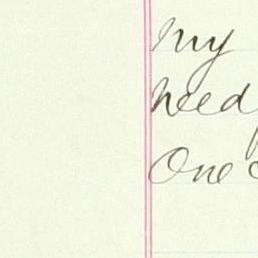 My
need
One